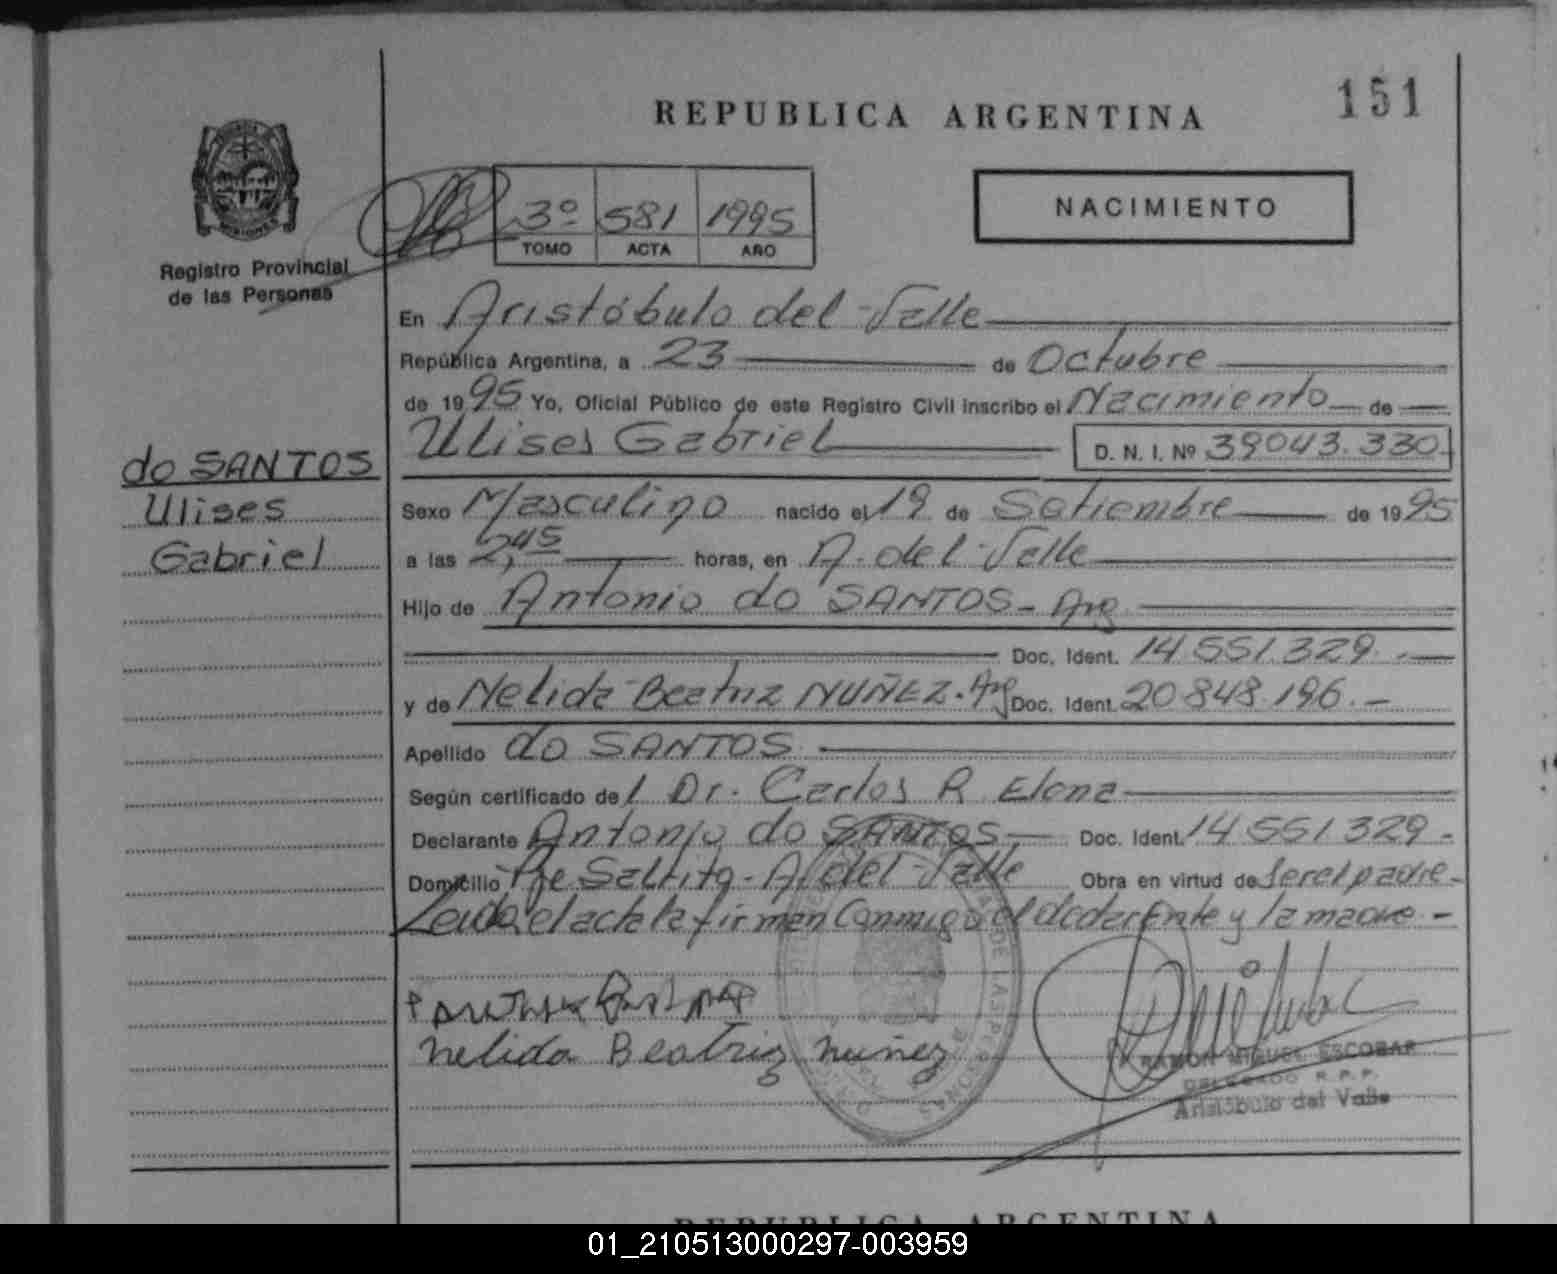 151
REPUBLICA ARGENTINA
NACIMIENTO
3º 581 1995
TOMO ACTA AÑO
Registro Provincial
de las Personas
En Aristóbulo del Valle
República Argentina, a 23 de Octubre
de 1995 Yo, Oficial Público de este Registro Civil inscribo el Nacimiento de
Ulises Gabriel D. N. I. Nº 39043.330
do SANTOS
Ulises
Gabriel
Sexo Masculino nacido el 19 de Setiembre de 1995
a las 2,45 horas, en A. del Valle
Hijo de Antonio do SANTOS - Arg
Doc. Ident. 14.551.329.-
y de Nelida Beatriz NUÑEZ. Arg Doc. Ident. 20.848.196.-
Apellido do SANTOS
Según certificado del Dr. Carlos R. Elena
Declarante Antonio do SANTOS Doc. Ident. 14 551 329-
Domicilio Pje Saltita - A. del Valle Obra en virtud de ser el padre-
Leida el acta la firman conmigo el declarante y la madre.-
Nelida Beatriz Nuñez
RAMON MIGUEL ESCOBAR
DELEGADO R.P.P.
Aristóbulo del Valle
REPUBLICA ARGENTINA
01_210513000297-003959